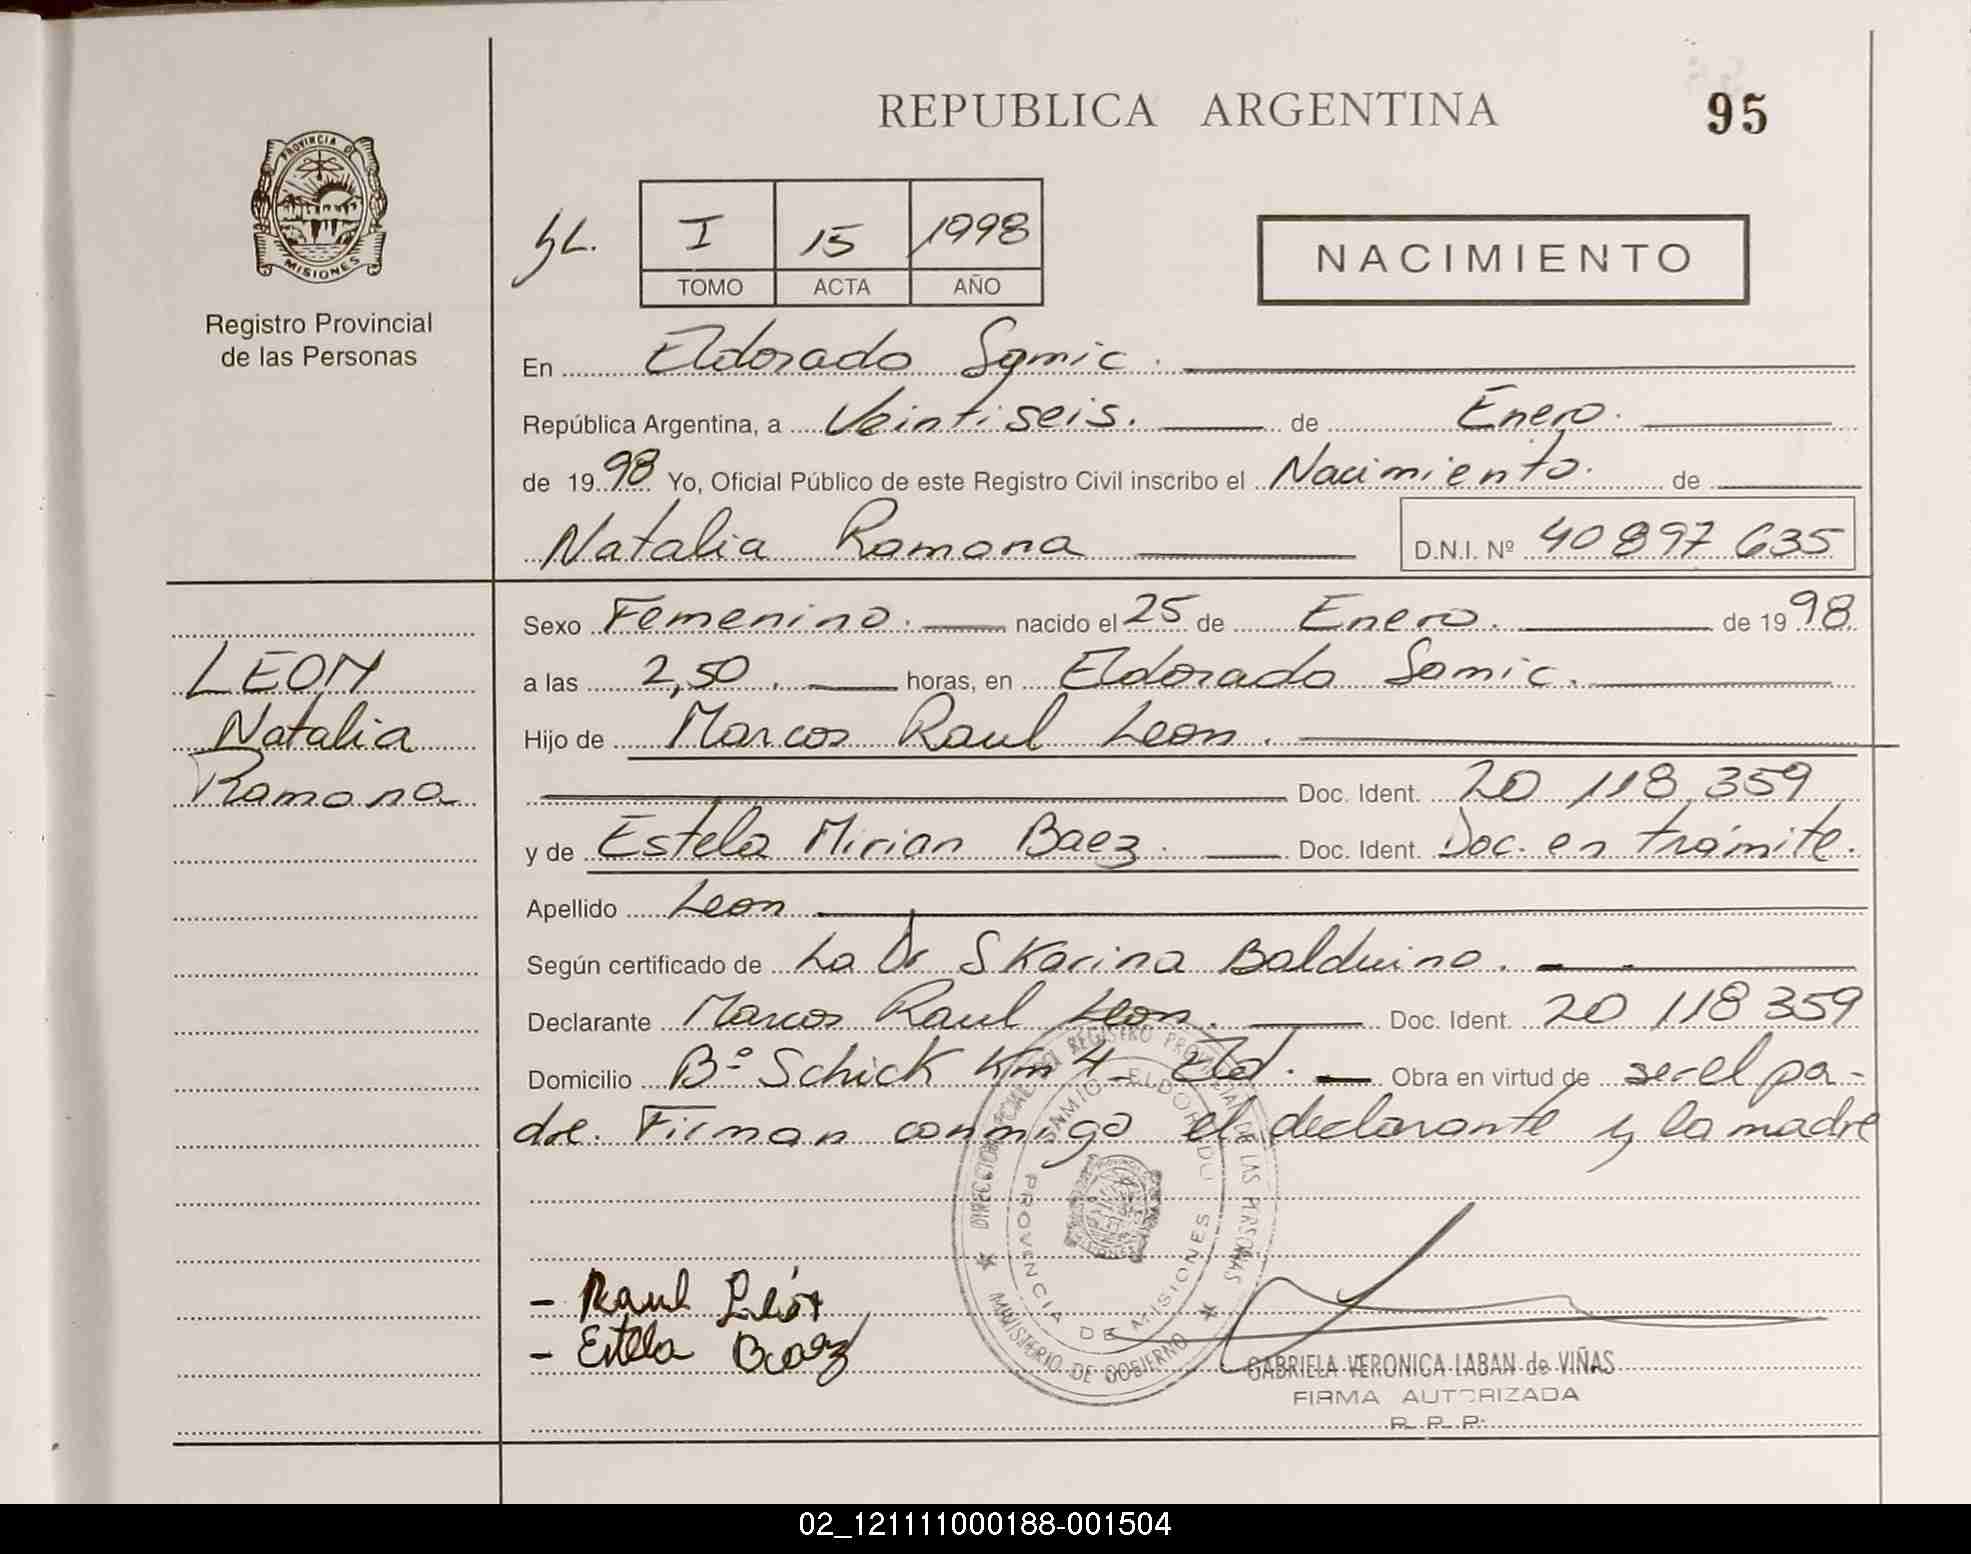 REPUBLICA ARGENTINA 95
PROVINCIA DE
MISIONES
Registro Provincial
de las Personas
I 15 1998
TOMO ACTA AÑO
NACIMIENTO
En Eldorado Samic.
República Argentina, a Veintiseis. de Enero.
de 1998 Yo, Oficial Público de este Registro Civil inscribo el Nacimiento. de
Natalia Ramona D.N.I. Nº 40 897 635
LEON
Natalia
Ramona
Sexo Femenino. nacido el 25 de Enero. de 1998.
a las 2,50. horas, en Eldorado Samic.
Hijo de Marcos Raul Leon.
Doc. Ident. 20 118 359
y de Estela Mirian Baez. Doc. Ident. Doc. en trámite.
Apellido Leon
Según certificado de La Dr S Karina Balduino.
Declarante Marcos Raul Leon. Doc. Ident. 20 118 359
Domicilio Bº Schick Km 4 - Eld. Obra en virtud de ser el pa-
dre. Firman conmigo el declarante y la madre
DIRECCION REGISTRO PROVINCIAL DE LAS PERSONAS
SAMIC - ELDORADO
PROVINCIA DE MISIONES
MINISTERIO DE GOBIERNO
- Raul León
- Estela Baez
GABRIELA VERONICA LABAN de VIÑAS
FIRMA AUTORIZADA
R. P. P.
02_121111000188-001504